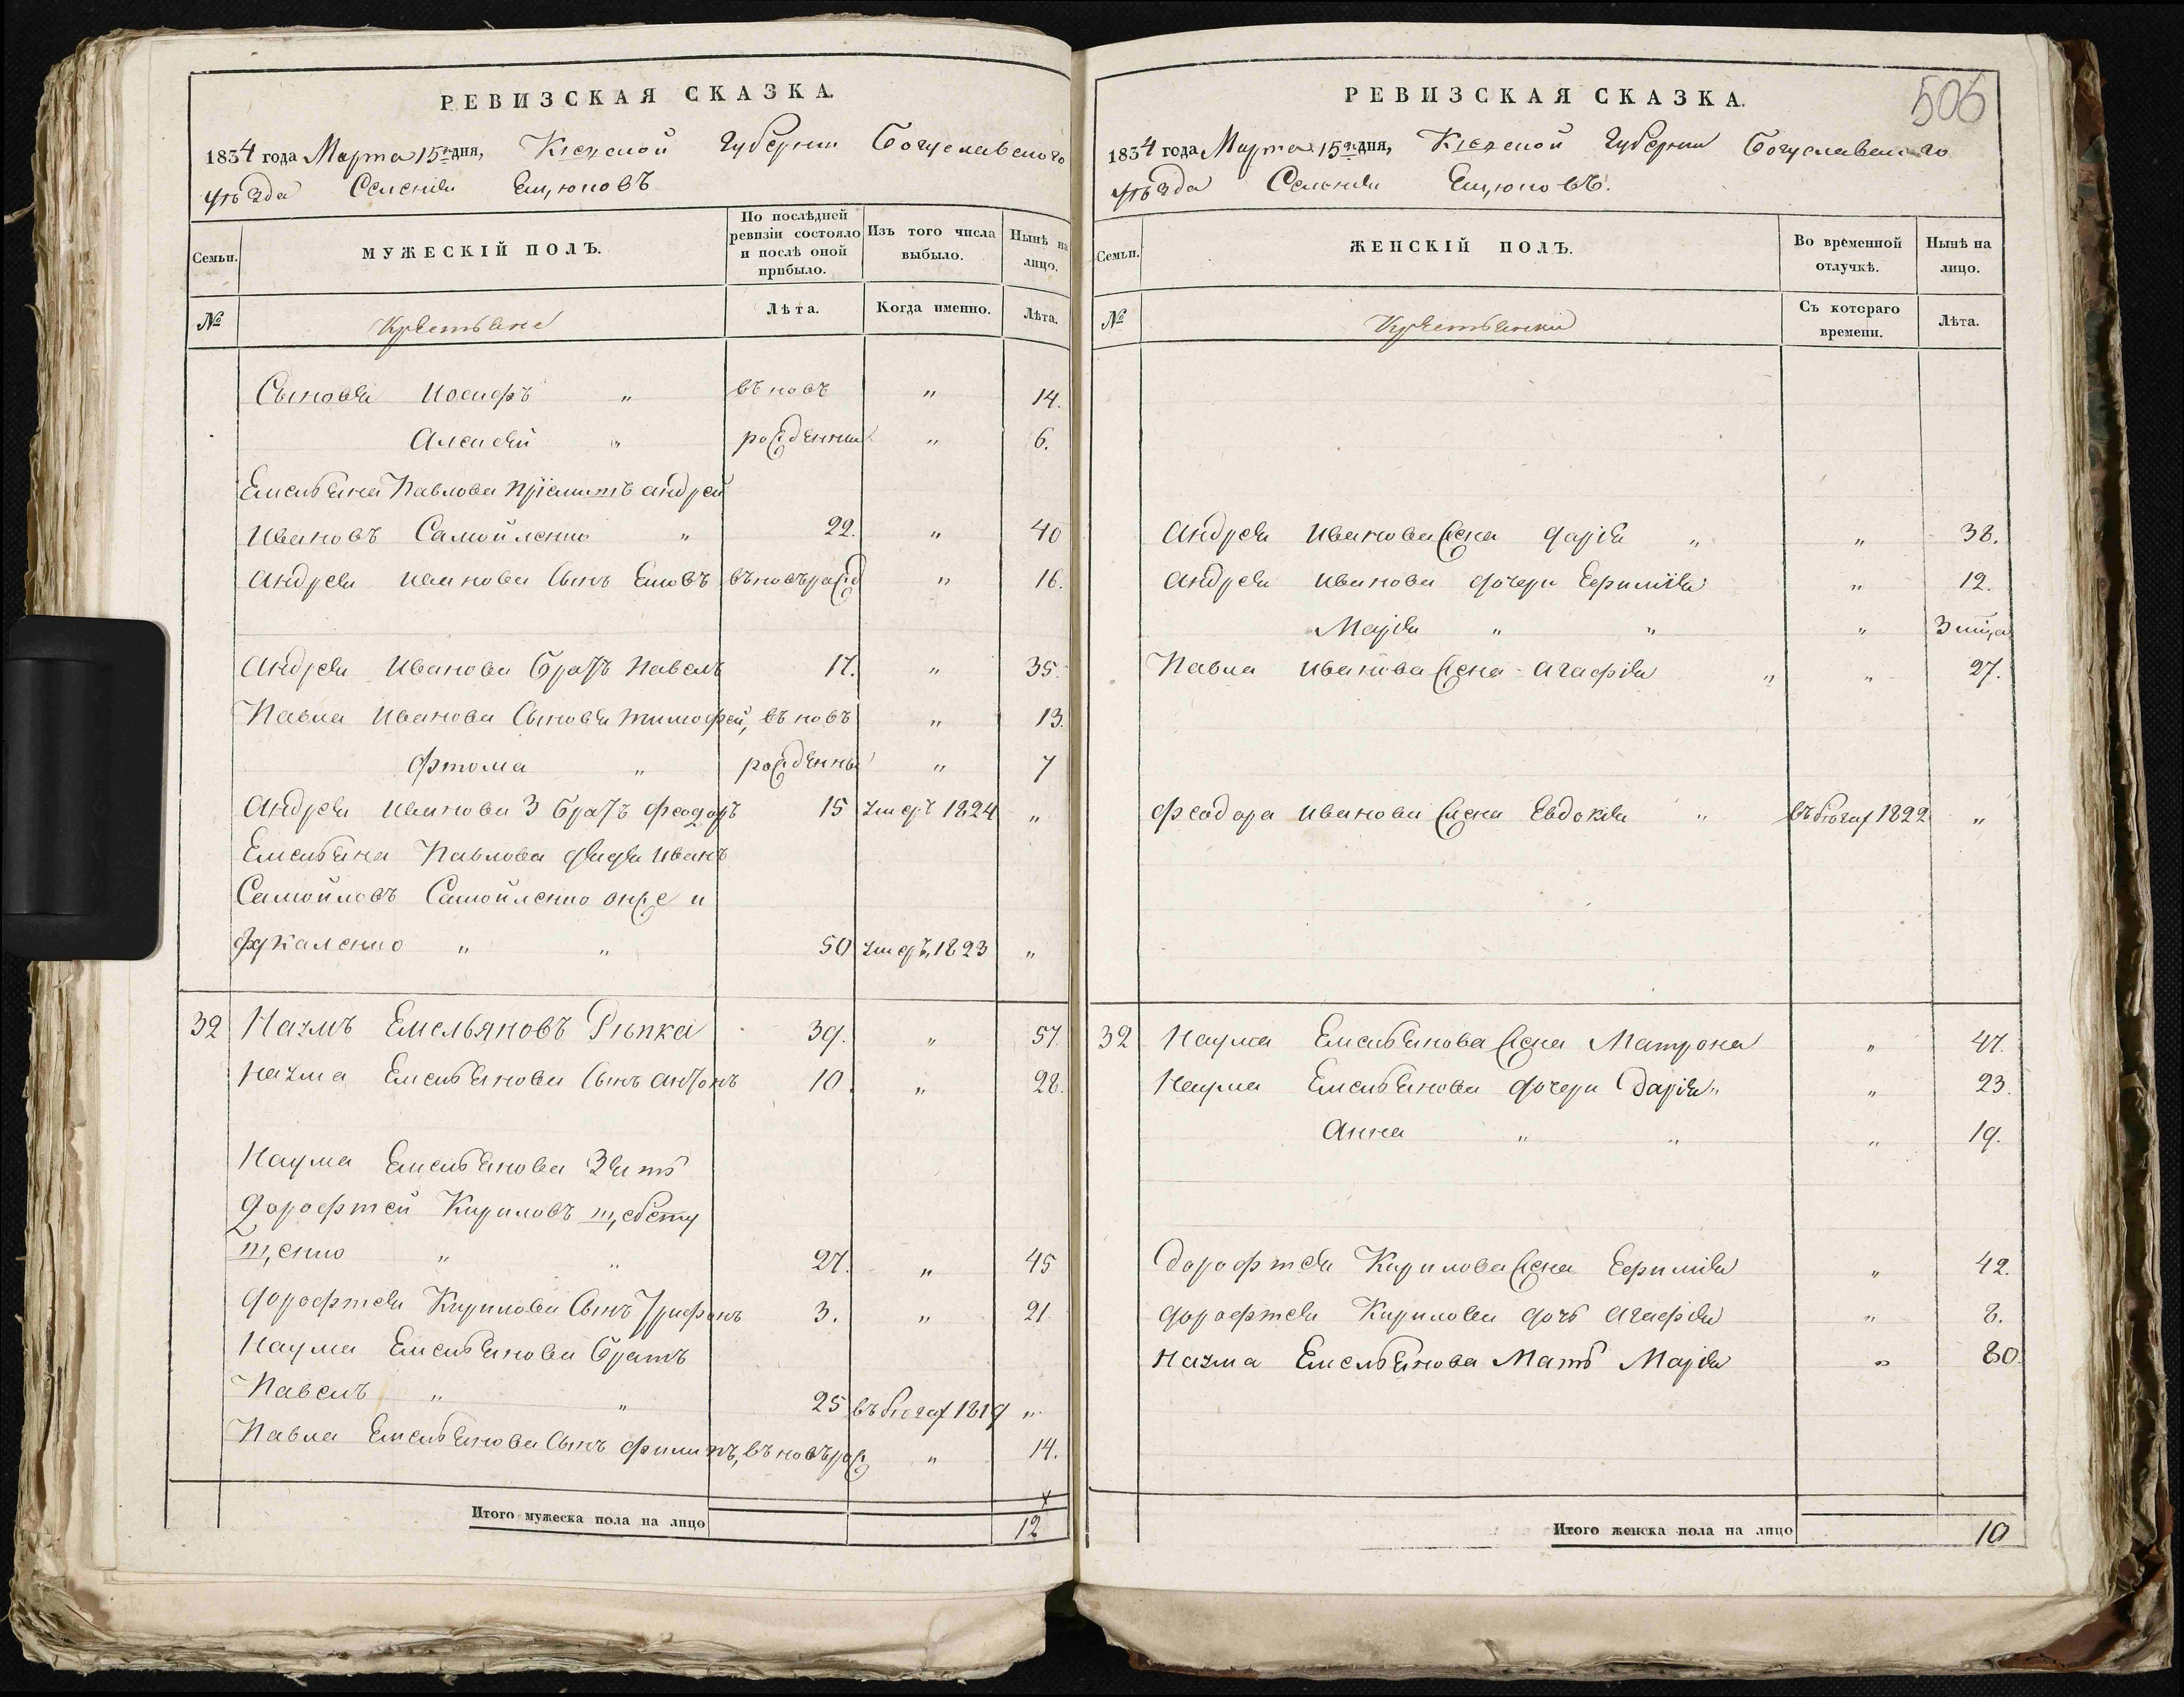 РЕВИЗСКАЯ СКАЗКА.
1834 года Марта 15го дня, Кіевской Губерніи Богуславскаго
уѣзда Селенія Ещюковъ
Семьи.
МУЖЕСКІЙ ПОЛЪ.
По послѣдней ревизіи состояло и послѣ оной прибыло.
Изъ того числа выбыло.
Нынѣ на лицо.
№
Крестьяне
Лѣта.
Когда именно.
Лѣта.
Сыновья Иосифъ " въ новъ " 14.
Алексѣй " рожденныи " 6.
Емельяна Павлова пріимитъ андрей
Ивановъ Самойленко " 22. " 40
Андрея иванова Сынъ Яковъ въновърожд " 16.
Андрея Иванова братъ Павелъ 17. " 35.
Павла Иванова Сыновья тимофей, въ новъ " 13.
Фтома " рожденны " 7
Андрея Иванова 3 братъ феодоръ 15 умеръ 1824 "
Емельяна Павлова дядя иванъ
Самойловъ Самойленко онже и
Дукаленко " " 50 умеръ, 1823 "
32 Наумъ Емельяновъ Рѣпка 39. " 57.
Наума Емельянова Сынъ антонъ 10. " 28.
Наума Емельянова Зять
дорофтей Кириловъ щебету
щенко " " 27. " 45
дорофтея Кирилова Сынъ Трифонъ 3. " 21
Наума Емельянова братъ
Павелъ " " 25 въ бѣгах 1819 "
Павла Емельянова Сынъ филипъ, въ новърож " 14.
Итого мужеска пола на лицо 12
РЕВИЗСКАЯ СКАЗКА.
506
1834 года Марта 15го дня, Кіевской Губерніи Богуславскаго
уѣзда Селенія Ещюковъ.
Семьи.
ЖЕНСКІЙ ПОЛЪ.
Во временной отлучкѣ.
Нынѣ на лицо.
№
Крестьянки
Съ котораго времени.
Лѣта.
Андрея Иванова жена дарія " " 38.
Андрея иванова дочери Ефимія " 12.
Марія " " " 3 мца
Павла Иванова жена агафія " " 27.
феодора иванова жена Евдокія " въ бѣгах 1822 "
32 Наума Емельянова жена Матрона " 47.
Наума Емельянова дочери Дарія " " 23.
Анна " " " 19.
Дорофтея Кирилова жена Ефимія " 42.
дорофтея Кирилова дочь агафія " 8.
Наума Емельянова Мать Марія " 80.
Итого женска пола на лицо 10